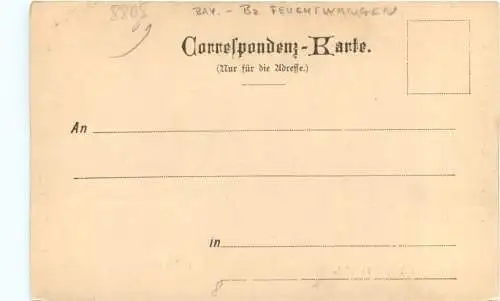 8808 BAY. - Bz FEUCHTWANGEN
Correspondenz-Karte.
(Nur für die Adresse.)
An
in